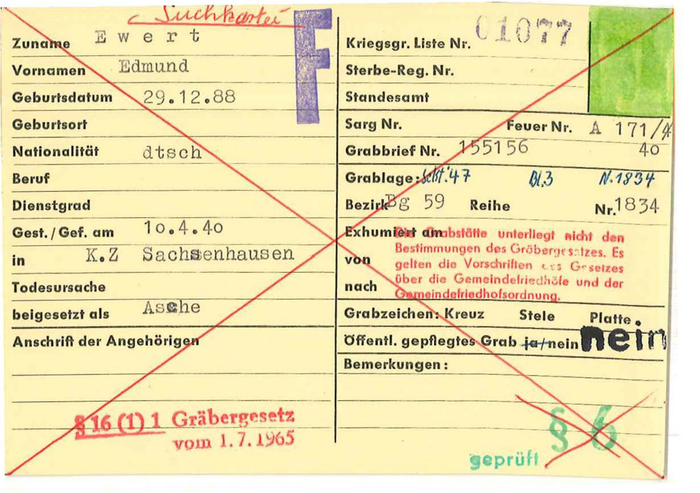 Suchkartei
Zuname Ewert
Vornamen Edmund
Geburtsdatum 29.12.88
Geburtsort
Nationalität dtsch
Beruf
Dienstgrad
Gest. / Gef. am 10.4.40
in K.Z Sachsenhausen
Todesursache
beigesetzt als Asche
Anschrift der Angehörigen
§ 16 (1) 1 Gräbergesetz
vom 1.7.1965
F
Kriegsgr. Liste Nr. 01077
Sterbe-Reg. Nr.
Standesamt
Sarg Nr. Feuer Nr. A 171/4
Grabbrief Nr. 155156 40
Grablage: '47 Bl.3 N.1834
Bezirk Bg 59 Reihe Nr. 1834
Exhumiert am
von
nach
Die Grabstätte unterliegt nicht den
Bestimmungen des Gräbergesetzes. Es
gelten die Vorschriften des Gesetzes
über die Gemeindefriedhöfe und der
Gemeindefriedhofsordnung.
Grabzeichen: Kreuz Stele Platte
Öffentl. gepflegtes Grab ja/nein nein
Bemerkungen:
§ 6
geprüft